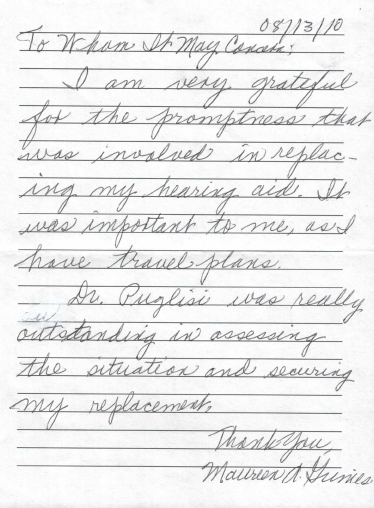 08/13/10
To Whom It May Concern:
I am very grateful
for the promptness that
was involved in replac-
ing my hearing aid. It
was important to me, as I
have travel plans.
Dr. Puglisi was really
outstanding in assessing
the situation and securing
my replacement.
Thank You,
Maureen A. Grimes